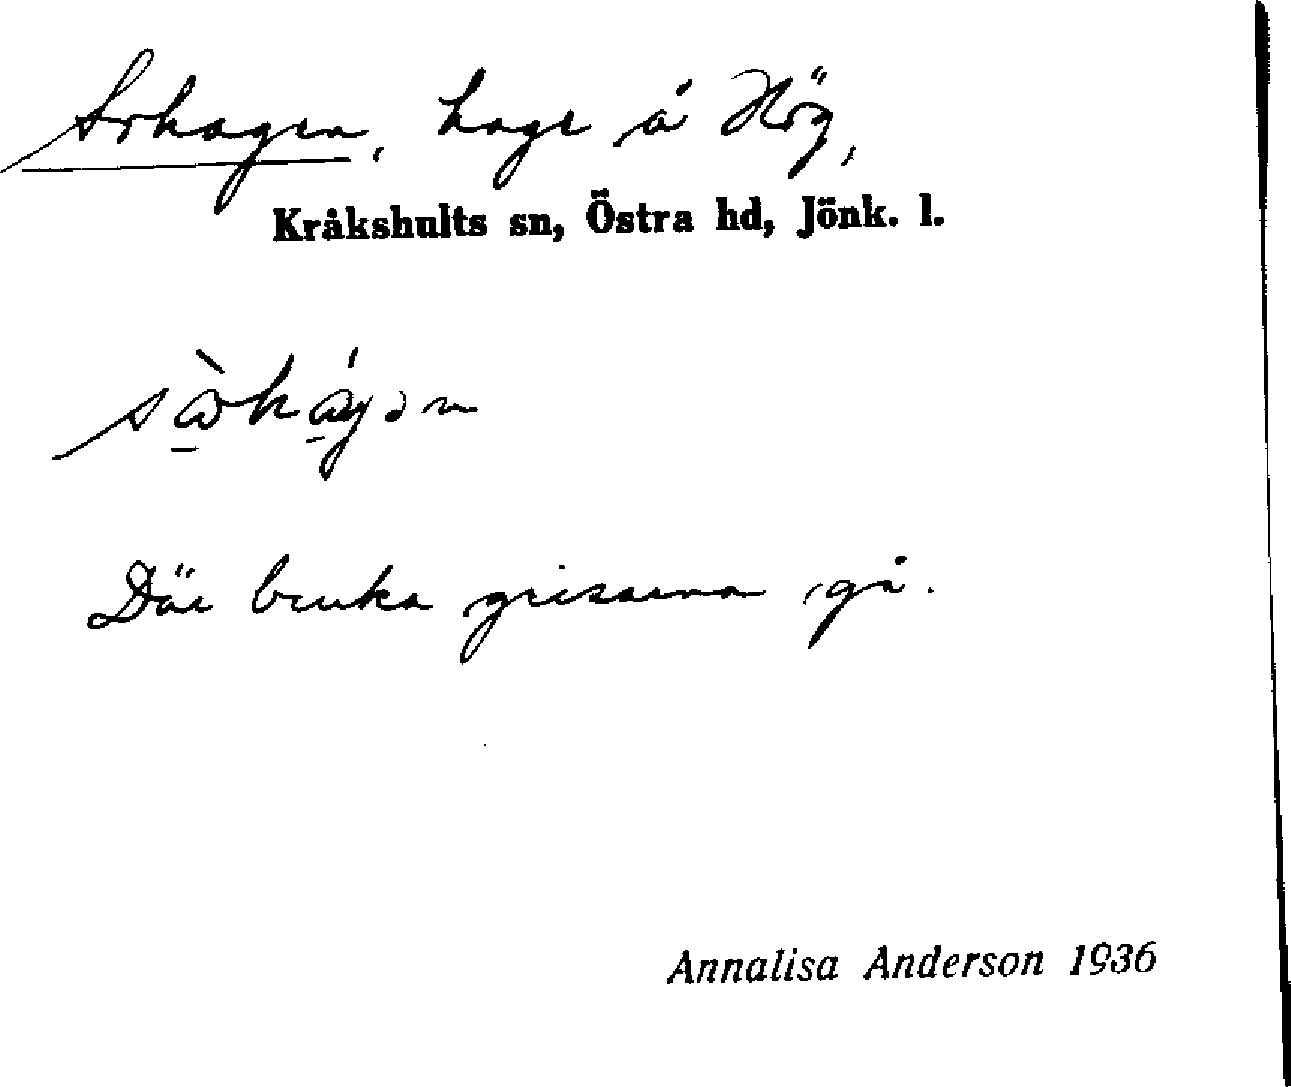 Sohagen, hage å Hög,
Kråkshults sn, Östra hd, Jönk. l.
Där bruka grisarna gå.
Annalisa Anderson 1936